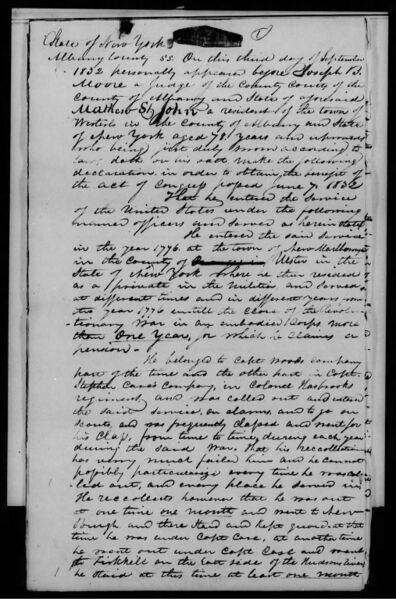 State of New York
Albany County SS. On this third day of September
1832 personally appeared before Joseph S.
Moore a Judge of the County Courts of the
County of Albany and State of aforesaid
Mathew St John a resident of the town of
Westerlo in the County of Albany and State
of New York aged 78 years and upwards
who being first duly sworn according to
law, doth on his oath make the following
declaration in order to obtain the benefit of
the act of Congress passed June 7, 1832
That he entered the Service
of the United States under the following
named officers and served as herein stated
He entered the said Service
in the year 1776 at the town of New Marlborough
in the County of Ulster in the
State of New York where he then resided
as a private in the Militia and Served
at different times and in different years from
the year 1776 untill the close of the Revolu
-tionary War in an embodied Corps more
than One Year, for which he claims a
pension.
He belonged to Capt Woods company
part of the time and the other part in Capt
Stephen Cases Company, in Colonel Hasbrooks
regiment, and was called out and entered
the said service, on alarms, and to go on
scouts, and was frequently classed and went for
his Class, from time to time, during each year
during the said War, that his recollection
has very much failed him and he cannot
possibly particularize every time he was cal
-led out, and every place he served in
He recollects however that he was out
at one time one month and went to New
-burgh and there staid and kept guard, at that
time he was under Capt Case, at another time
he went out under Capt Case and went
to Fishkill on the East side of the Hudson River
he staid at this time at least one month